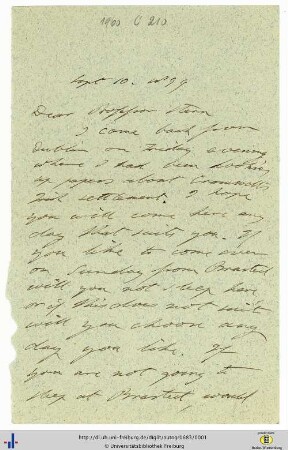 1960 C 210
Sept 10. 1899
Dear Professor Stern
I came back from
Dublin on Friday evening
where I had been looking
up papers about Cromwell's
Irish settlement. I hope
you will come here any
day that suits you. If
you like to come over
on Sunday from Brasted
will you not sleep here
or if this does not suit
will you choose any
day you like. If
you are not going to
sleep at Brasted, would
http://dl.ub.uni-freiburg.de/diglit/autogr0683/0001
© Universitätsbibliothek Freiburg